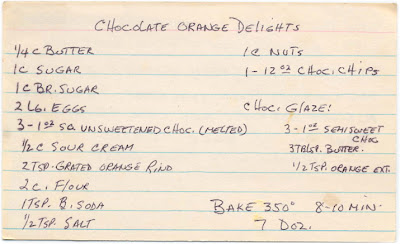 CHOCOLATE ORANGE DELIGHTS
1/4 C BUTTER
1C SUGAR
1C BR. SUGAR
2 LG. EGGS
3-1oz SQ UNSWEETENED CHOC. (MELTED)
1/2 C SOUR CREAM
2 TSP. GRATED ORANGE RIND
2 C. FLOUR
1 TSP. B. SODA
1/2 TSP. SALT
1C NUTS
1-12 oz CHOC. CHIPS
CHOC. GLAZE:
3-1oz SEMISWEET
CHOC
3 TBLSP. BUTTER.
1/2 TSP. ORANGE EXT.
BAKE 350° 8-10 MIN.
7 DOZ.